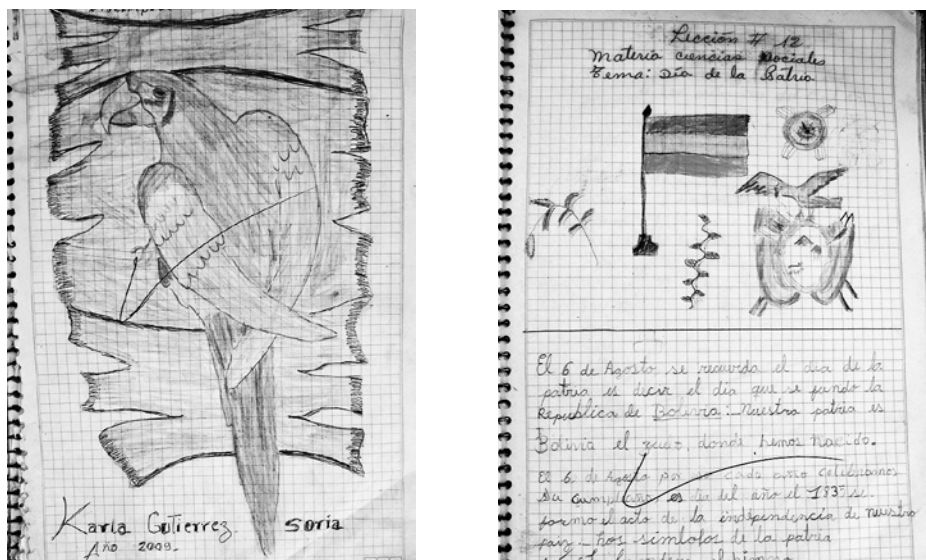 Karla Gutierrez Soria
Año 2009.
Lección # 12
Materia ciencias sociales
Tema: Día de la Patria
El 6 de Agosto se recuerda el dia de la
patria es decir el dia que se fundo la
Republica de Bolivia. Nuestra patria es
Bolivia el donde hemos nacido.
El 6 de Agosto cada año celebramos
su es dia del año el 1835 se
formo el acto de la independencia de nuestro
pais los simbolos de la patria